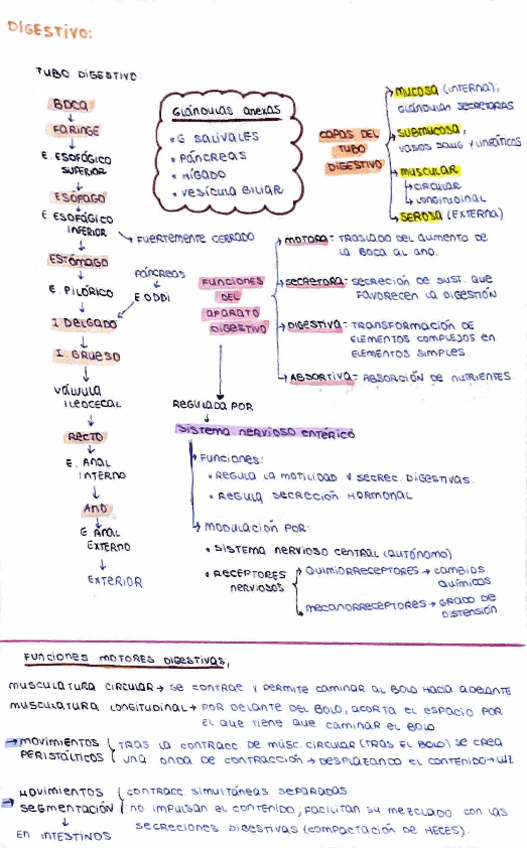 DIGESTIVO:
TUBO DIGESTIVO:
BOCA
FARINGE
E. ESOFÁGICO
SUPERIOR
ESÓFAGO
E ESOFÁGICO
INFERIOR
FUERTEMENTE CERRADO
ESTÓMAGO
E. PILÓRICO
PÁNCREAS
E ODDI
I DELGADO
I. GRUESO
VÁLVULA
ILEOCECAL
RECTO
E. ANAL
INTERNO
ANO
E. ANAL
EXTERNO
EXTERIOR
GLÁNDULAS ANEXAS
• G SALIVALES
• PÁNCREAS
• HÍGADO
• VESÍCULA BILIAR
CAPAS DEL
TUBO
DIGESTIVO
MUCOSA (INTERNA),
GLÁNDULAS SECRETORAS
SUBMUCOSA,
VASOS SANG Y LINFÁTICOS
MUSCULAR
CIRCULAR
LONGITUDINAL
SEROSA (EXTERNA)
FUNCIONES
DEL
APARATO
DIGESTIVO
MOTORA: TRASLADO DEL AUMENTO DE
LA BOCA AL ANO.
SECRETORA: SECRECIÓN DE SUST. QUE
FAVORECEN LA DIGESTIÓN
DIGESTIVA: TRANSFORMACIÓN DE
ELEMENTOS COMPLEJOS EN
ELEMENTOS SIMPLES
ABSORTIVA: ABSORCIÓN DE NUTRIENTES.
REGULADA POR
SISTEMA NERVIOSO ENTÉRICO
FUNCIONES:
• REGULA LA MOTILIDAD Y SECREC. DIGESTIVAS.
• REGULA SECRECIÓN HORMONAL
MODULACIÓN POR:
• SISTEMA NERVIOSO CENTRAL (AUTÓNOMO)
• RECEPTORES
NERVIOSOS
QUIMIORRECEPTORES → CAMBIOS
QUÍMICOS
MECANORRECEPTORES → GRADO DE
DISTENSIÓN
FUNCIONES MOTORES DIGESTIVAS,
MUSCULATURA CIRCULAR → SE CONTRAE Y PERMITE CAMINAR AL BOLO HACIA ADELANTE
MUSCULATURA LONGITUDINAL → POR DELANTE DEL BOLO, ACORTA EL ESPACIO POR
EL QUE TIENE QUE CAMINAR EL BOLO
→ MOVIMIENTOS PERISTÁLTICOS
TRAS LA CONTRACC DE MÚSC. CIRCULAR (TRAS EL BOLO) SE CREA
UNA ONDA DE CONTRACCIÓN → DESPLAZANDO EL CONTENIDO → LUZ.
→ MOVIMIENTOS SEGMENTACIÓN
EN INTESTINOS
CONTRACC SIMULTÁNEAS SEPARADAS
NO IMPULSAN EL CONTENIDO; FACILITAN SU MEZCLADO CON LAS
SECRECIONES DIGESTIVAS (COMPACTACIÓN DE HECES).